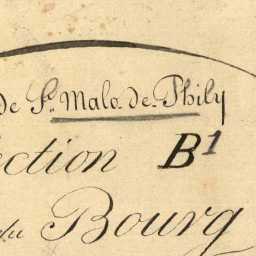 de St. Malo-de-Phily
ection B1
du Bourg